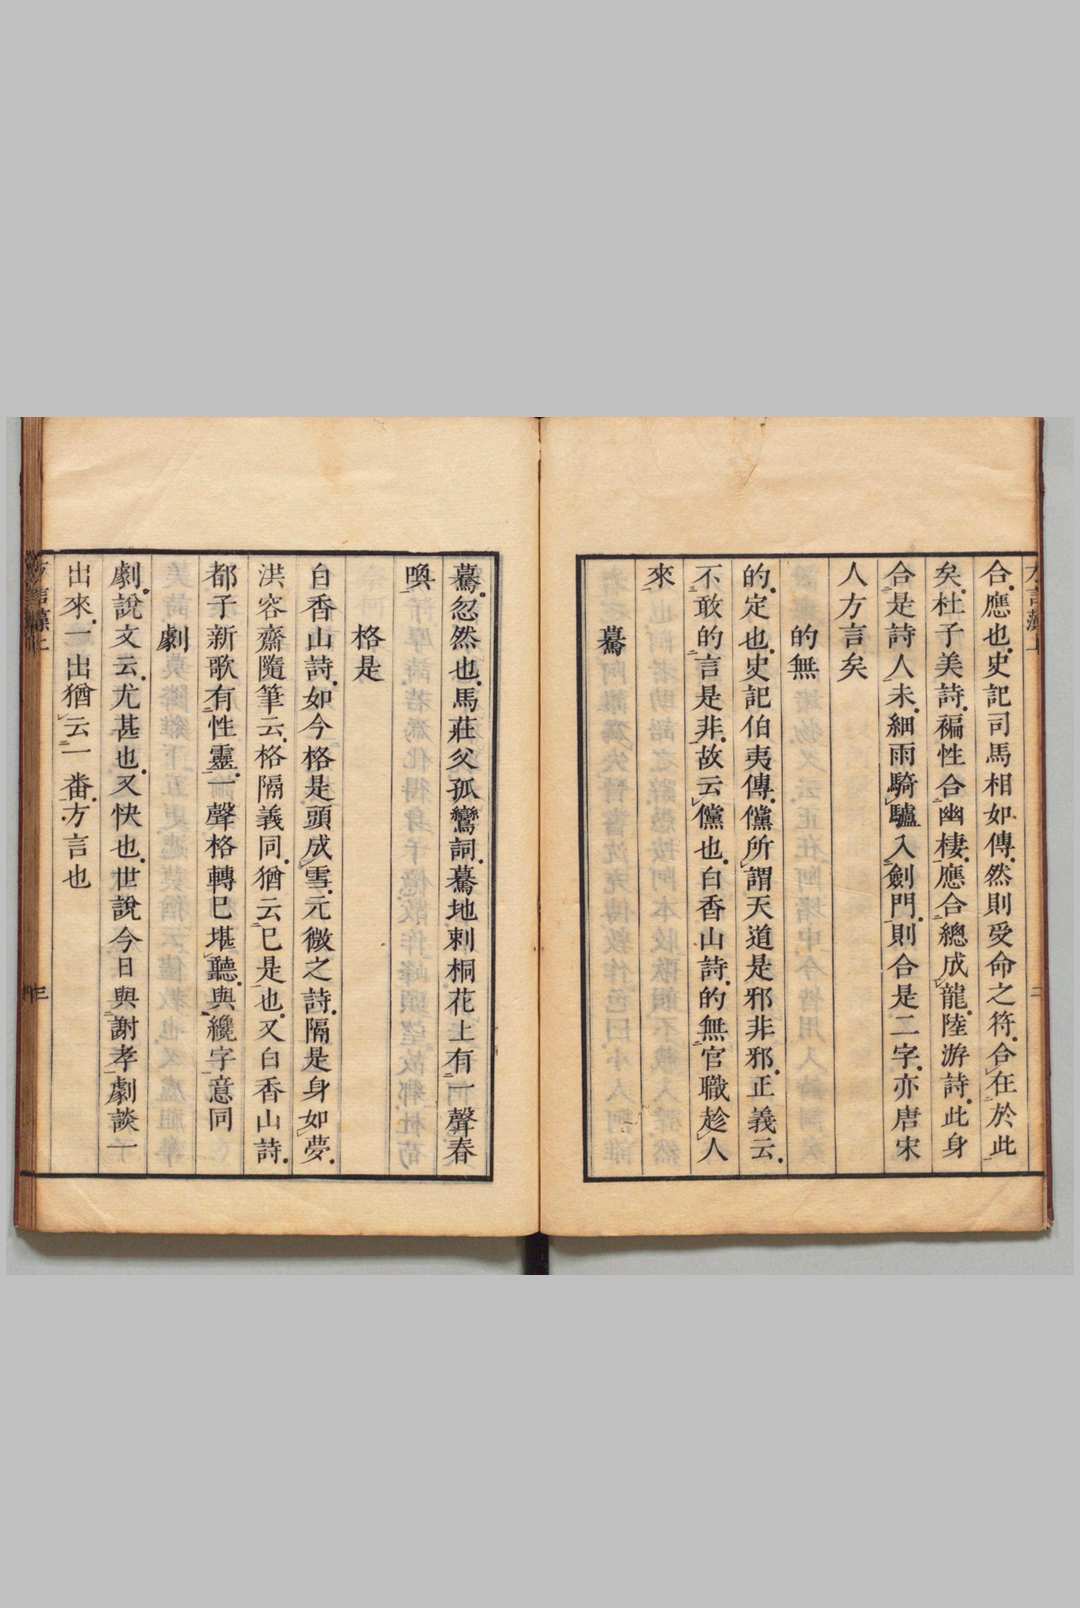 方言藻上
合應也史記司馬相如傳然則受命之符合在於此
矣杜子美詩褊性合幽棲應合總成龍陸游詩此身
合是詩人未細雨騎驢入劍門則合是二字亦唐宋
人方言矣
的無
的定也史記伯夷傳儻所謂天道是邪非邪正義云
不敢的言是非故云儻也白香山詩的無官職趁人
來
驀
驀忽然也馬莊父孤鸞詞驀地刺桐花上有一聲春
喚
格是
白香山詩如今格是頭成雪元微之詩隔是身如夢
洪容齋隨筆云格隔義同猶云已是也又白香山詩
都子新歌有性靈一聲格轉已堪聽與纔字意同
劇
劇說文云尤甚也又快也世說今日與謝孝劇談一
出來一出猶云一番方言也
方言藻上
三